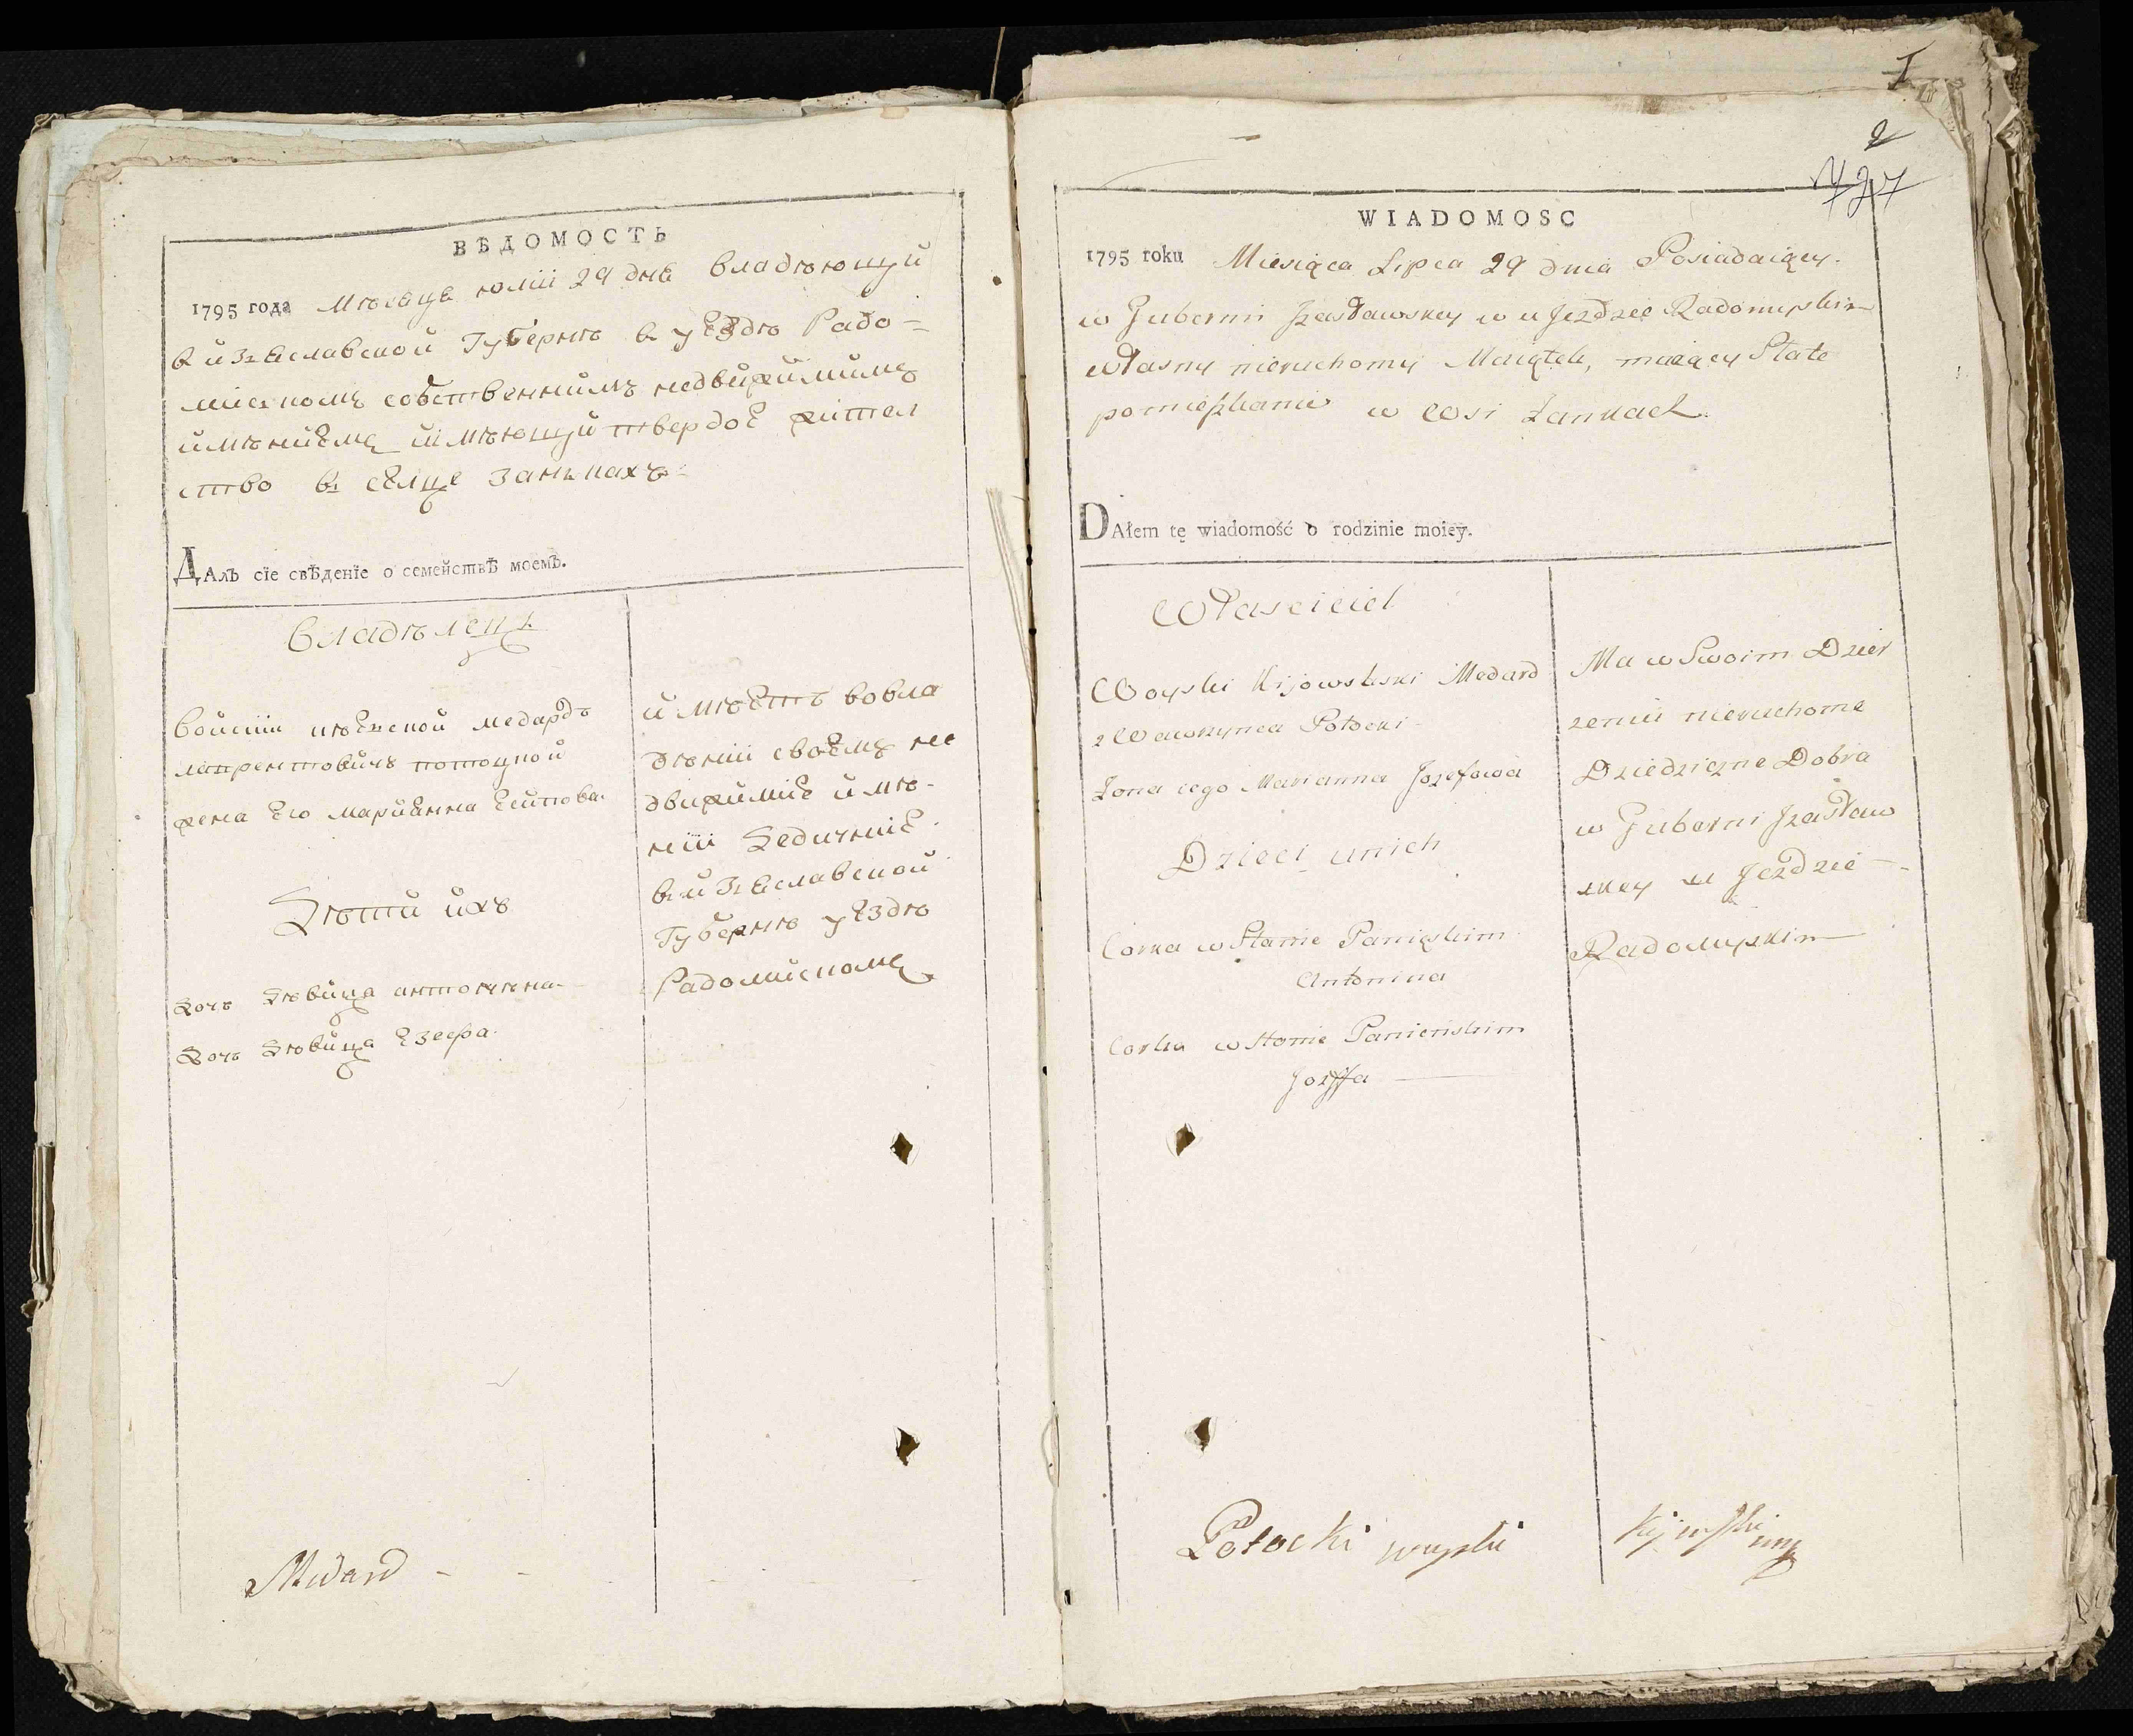 ВѢДОМОСТЬ
1795 года мѣсяца юлій 29 дня владѣющій
в изъяславской губерніѣ в уездѣ Радо=
мискомъ собственнимъ недвижимимъ
имѣниемъ имѣющій твердое жител
ство в селце занькахъ
ДАлЪ сїе свѣденїе о семействѣ моемЪ.
владѣлецъ
войскій киевской медардъ
лаврентовичъ потоцкой
жена его марианна
дѣти ихъ
дочь девица антонина
дочь девица езефа
имѣетъ вовла
дѣніи своемъ не
движиміе имѣ-
нія дедичніе
в изъяславской
губернѣ уездѣ
Радомискомъ
Medard
I
2
WIADOMOSC
1795 roku Miesiąca Lipca 29 dnia Posiadaiący
w Guberni Jzasławskey w uJezdzie Radomyskim
własny nieruchomy Maiątek, maiący Stałe
pomieszkanie w Wsi Zankach
DAłem tę wiadomość o rodzinie moiey.
Właściciel
Woyski Kijowski Medard
z Wawrzynca Potocki
Zona iego Marianna Jozefowa
Dzieci unich
Corka w Stanie Panięskim
Antonina
Corka w stanie Panieńskim
Jozeffa
Ma w Swoim Dzier
zeniu nieruchome
Dziedziczne Dobra
w Guberni Jzasław
skey w Jezdzie
Radomyskim
Potocki woyski Kijowski